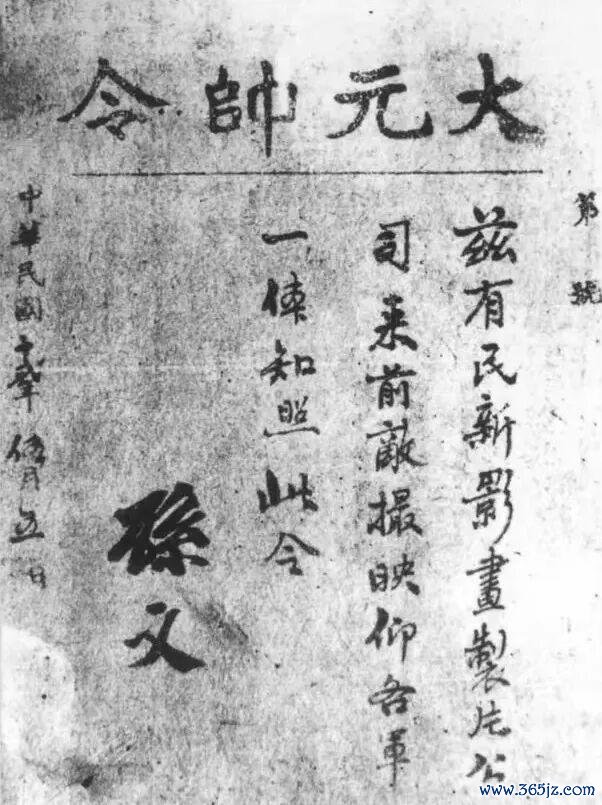 大元帥令
第 號
茲有民新影畫製片公
司来前敵撮映仰各軍
一体知照此令
孫文
中華民國 年 月五日
www.365jz.com